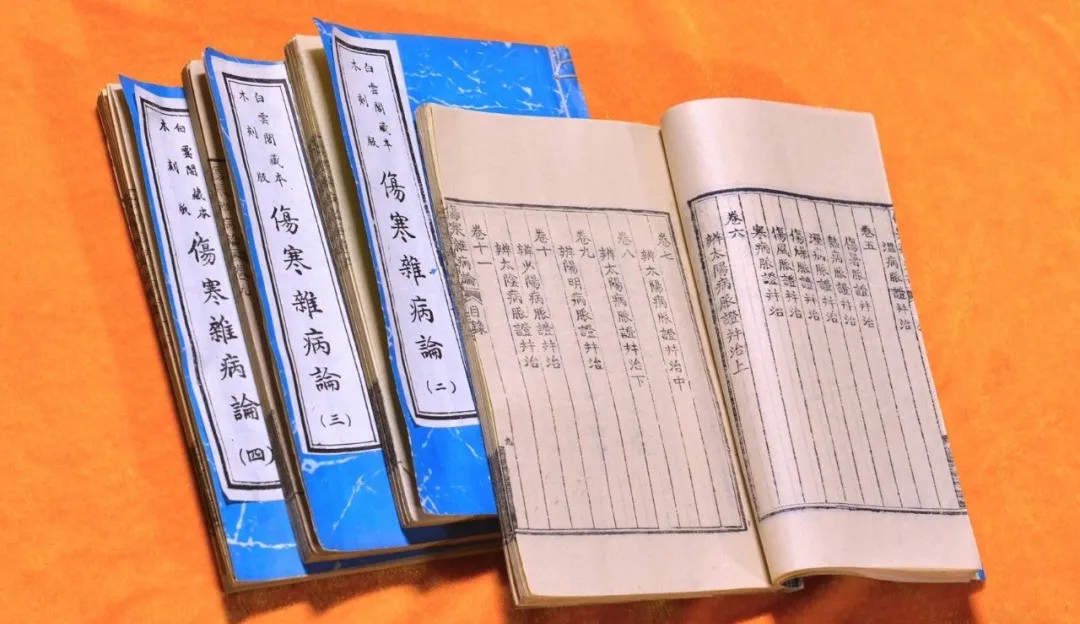 白雲閣藏本
木刻版
傷寒雜病論
(四)
白雲閣藏本
木刻版
傷寒雜病論
(三)
白雲閣藏本
木刻版
傷寒雜病論
(二)
溫病脈證并治
卷五
傷暑脈證并治
熱病脈證并治
濕病脈證并治
傷燥脈證并治
傷風脈證并治
寒病脈證并治
卷六
辨太陽病脈證并治上
卷七
辨太陽病脈證并治中
卷八
辨太陽病脈證并治下
卷九
辨陽明病脈證并治
卷十
辨少陽病脈證并治
辨太陰病脈證并治
卷十一
傷寒雜病論 目錄